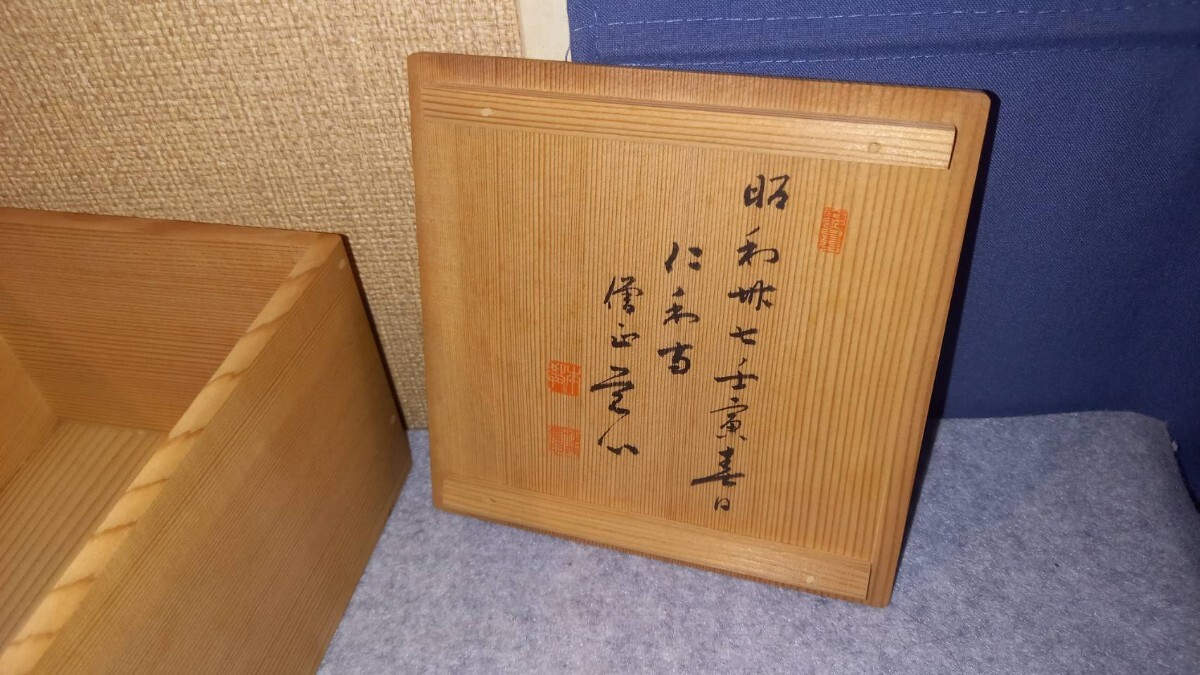 昭和卅七壬寅春日
仁和寺
僧正